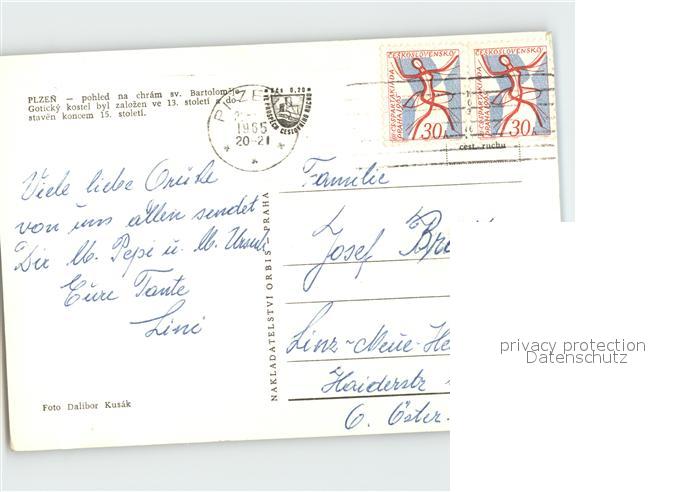 PLZEŇ — pohled na chrám sv. Bartoloměje
Gotický kostel byl založen ve 13. století a do-
stavěn koncem 15. století.
PLZEŇ
1965
20-21
ČESKOSLOVENSKO
III. CELOSTÁTNÍ SPARTAKIÁDA
PRAHA 1965
30h
ČESKOSLOVENSKO
PRAHA 1965
30h
cest. ruchu
Viele liebe Grüße
von uns allen sendet
Dir M. Pepi u. M. Ursula
Eure Tante
Linci
NAKLADATELSTVÍ ORBIS — PRAHA
Familie
Josef
Linz-Neue-He
Haiderstr
O. Öster.
Foto Dalibor Kusák
privacy protection
Datenschutz